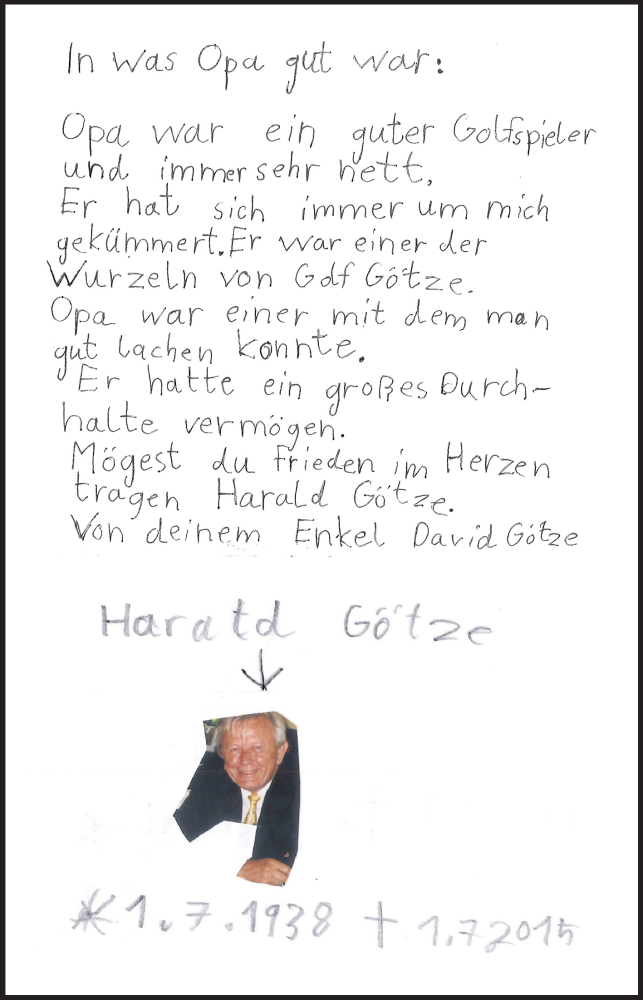 In was Opa gut war:
Opa war ein guter Golfspieler
und immer sehr nett,
Er hat sich immer um mich
gekümmert. Er war einer der
Wurzeln von Golf Götze.
Opa war einer mit dem man
gut lachen konnte.
Er hatte ein großes Durch-
halte vermögen.
Mögest du frieden im Herzen
tragen Harald Götze.
Von deinem Enkel David Götze
Harald Götze
↓
* 1.7.1938 † 1.7.2015